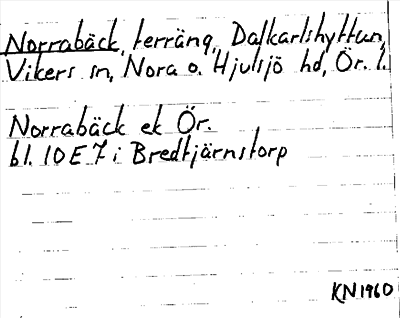 Norrabäck, terräng, Dalkarlshyttan,
Vikers sn, Nora o. Hjulsjö hd, Ör. l.
Norrabäck ek Ör.
bl. 10E7i Bredtjärnstorp
KN1960